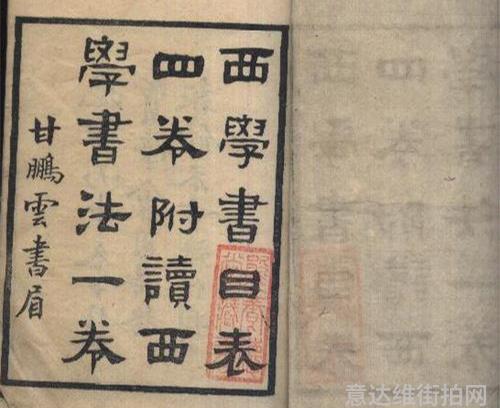 西學書目表
四卷附讀西
學書法一卷
甘鵬雲書眉
意达维街拍网